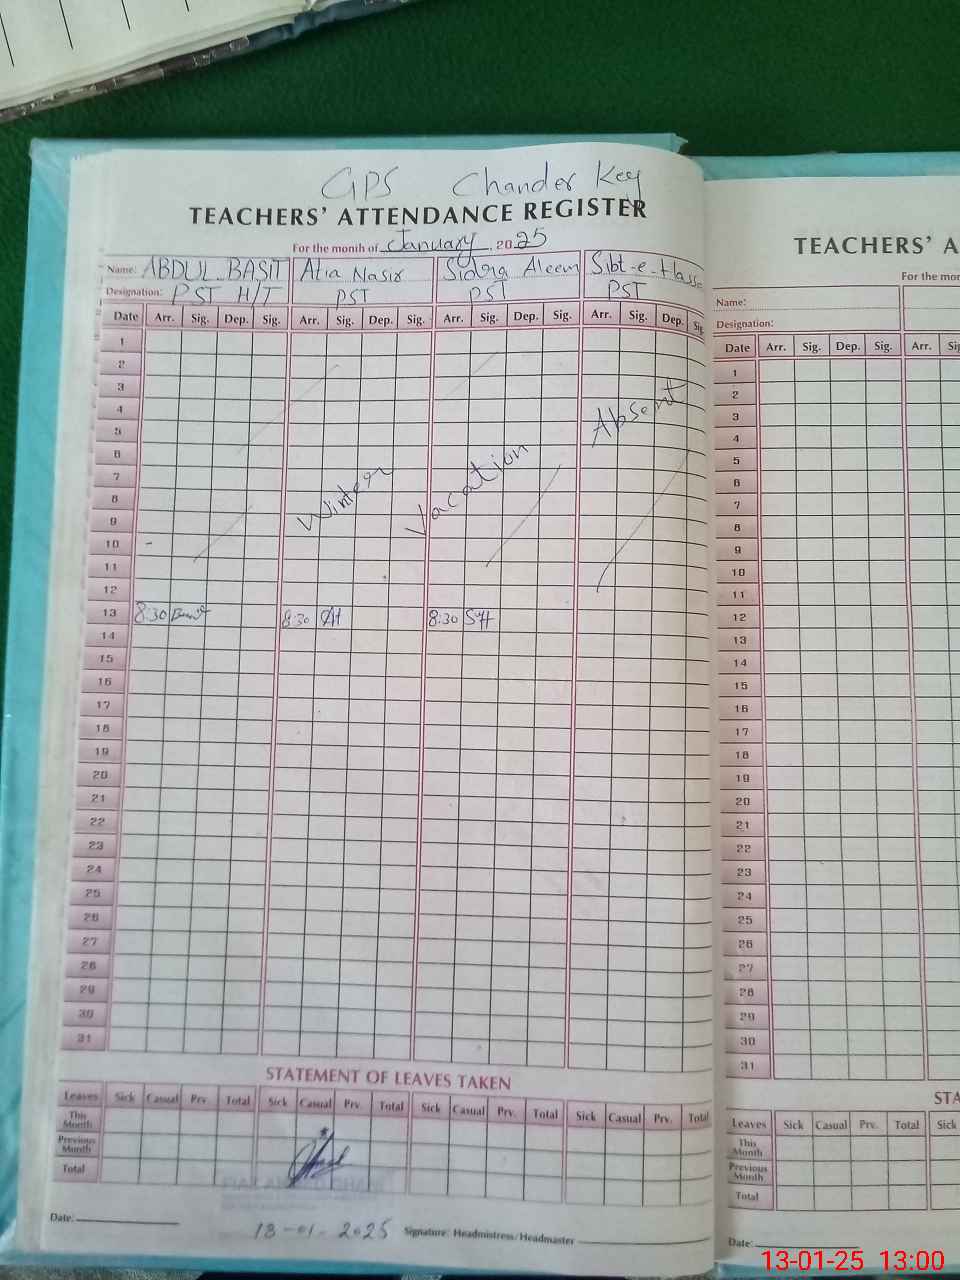 GPS Chander Key
TEACHERS' ATTENDANCE REGISTER
For the month of January, 2025
Name: ABDUL BASIT Atia Nasir Sidra Aleem Sibt-e-Hass
Designation: PST H/T PST PST PST
Date Arr. Sig. Dep. Sig. Arr. Sig. Dep. Sig. Arr. Sig. Dep. Sig. Arr. Sig. Dep. Sig
1
2
3
4
5
6
7
8
9
10
11
12
13 8:30 8:30 8:30
14
15
16
17
18
19
20
21
22
23
24
25
26
27
28
29
30
31
Winter Vacation
Absent
STATEMENT OF LEAVES TAKEN
Leaves Sick Casual Prv. Total Sick Casual Prv. Total Sick Casual Prv. Total Sick Casual Prv. Total
This Month
Previous Month
Total
Date:
13-01-2025 Signature: Headmistress/Headmaster
TEACHERS' A
For the mon
Name:
Designation:
Date Arr. Sig. Dep. Sig. Arr. Si
1
2
3
4
5
6
7
8
9
10
11
12
13
14
15
16
17
18
19
20
21
22
23
24
25
26
27
28
29
30
31
STA
Leaves Sick Casual Prv. Total Sick
This Month
Previous Month
Total
Date:
13-01-25 13:00